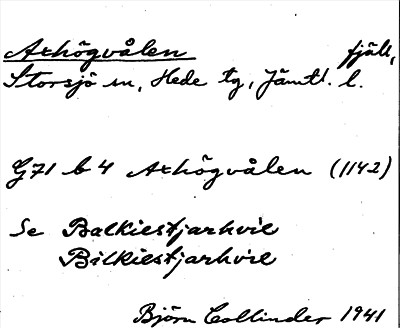 Axhögvålen fjäll,
Storsjö sn, Hede tg, Jämtl. l.
G71 b 4 Axhögvålen (1142)
Se Balkiestjarhvie
Bilkiestjarhvie
Björn Collinder 1941